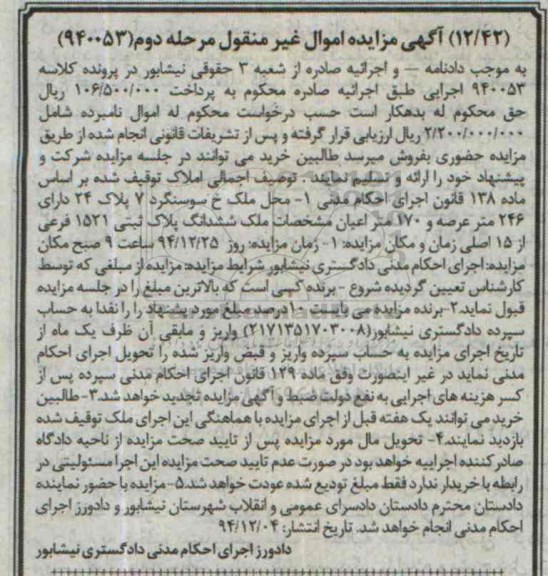 (۱۲/۴۲) آگهی مزایده اموال غیر منقول مرحله دوم(۹۴۰۰۵۳)
به موجب دادنامه — و اجرائیه صادره از شعبه ۳ حقوقی نیشابور در پرونده کلاسه
۹۴۰۰۵۳ اجرایی طبق اجرائیه صادره محکوم به پرداخت ۱۰۶/۵۰۰/۰۰۰ ریال
حق محکوم له بدهکار است حسب درخواست محکوم له اموال نامبرده شامل
۲/۲۰۰/۰۰۰/۰۰۰ ریال ارزیابی قرار گرفته و پس از تشریفات قانونی انجام شده از طریق
مزایده حضوری بفروش میرسد طالبین خرید می توانند در جلسه مزایده شرکت و
پیشنهاد خود را ارائه و تسلیم نمایند . توصیف اجمالی املاک توقیف شده بر اساس
ماده ۱۳۸ قانون اجرای احکام مدنی ۱- محل ملک خ سوسنگرد ۷ پلاک ۲۴ دارای
۲۴۶ متر عرصه و ۱۷۰ متر اعیان مشخصات ملک ششدانگ پلاک ثبتی ۱۵۲۱ فرعی
از ۱۵ اصلی زمان و مکان مزایده: ۱- زمان مزایده: روز ۹۴/۱۲/۲۵ ساعت ۹ صبح مکان
مزایده: اجرای احکام مدنی دادگستری نیشابور شرایط مزایده: مزایده از مبلغی که توسط
کارشناس تعیین گردیده شروع - برنده کسی است که بالاترین مبلغ را در جلسه مزایده
قبول نماید.۲-برنده مزایده می بایست ۱۰درصد مبلغ مورد پیشنهاد را را نقدا به حساب
سپرده دادگستری نیشابور(۲۱۷۱۳۵۱۷۰۳۰۰۸) واریز و مابقی آن ظرف یک ماه از
تاریخ اجرای مزایده به حساب سپرده واریز و قبض واریز شده را تحویل اجرای احکام
مدنی نماید در غیر اینصورت وفق ماده ۱۲۹ قانون اجرای احکام مدنی سپرده پس از
کسر هزینه های اجرایی به نفع دولت ضبط و آگهی مزایده تجدید خواهد شد.۳-طالبین
خرید می توانند یک هفته قبل از اجرای مزایده با هماهنگی این اجرای ملک توقیف شده
بازدید نمایند.۴- تحویل مال مورد مزایده پس از تایید صحت مزایده از ناحیه دادگاه
صادر کننده اجراییه خواهد بود در صورت عدم تایید صحت مزایده این اجرا مسئولیتی در
رابطه با خریدار ندارد فقط مبلغ تودیع شده عودت خواهد شد.۵-مزایده با حضور نماینده
دادستان محترم دادستان دادسرای عمومی و انقلاب شهرستان نیشابور و دادورز اجرای
احکام مدنی انجام خواهد شد. تاریخ انتشار: ۹۴/۱۲/۰۴
دادورز اجرای احکام مدنی دادگستری نیشابور